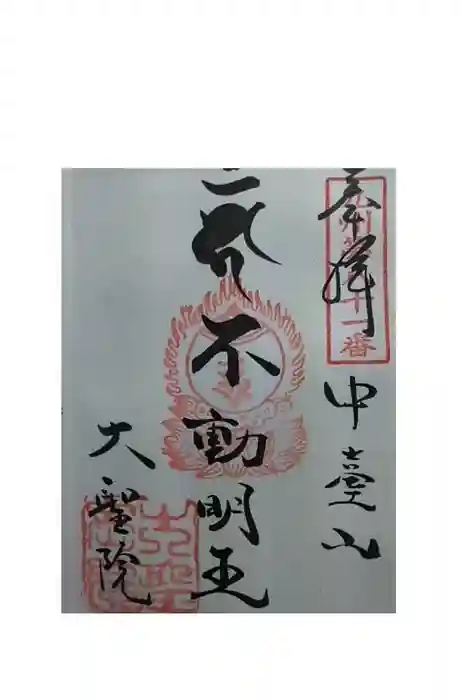 奉拝
中臺山
不動明王
大聖院
十一番